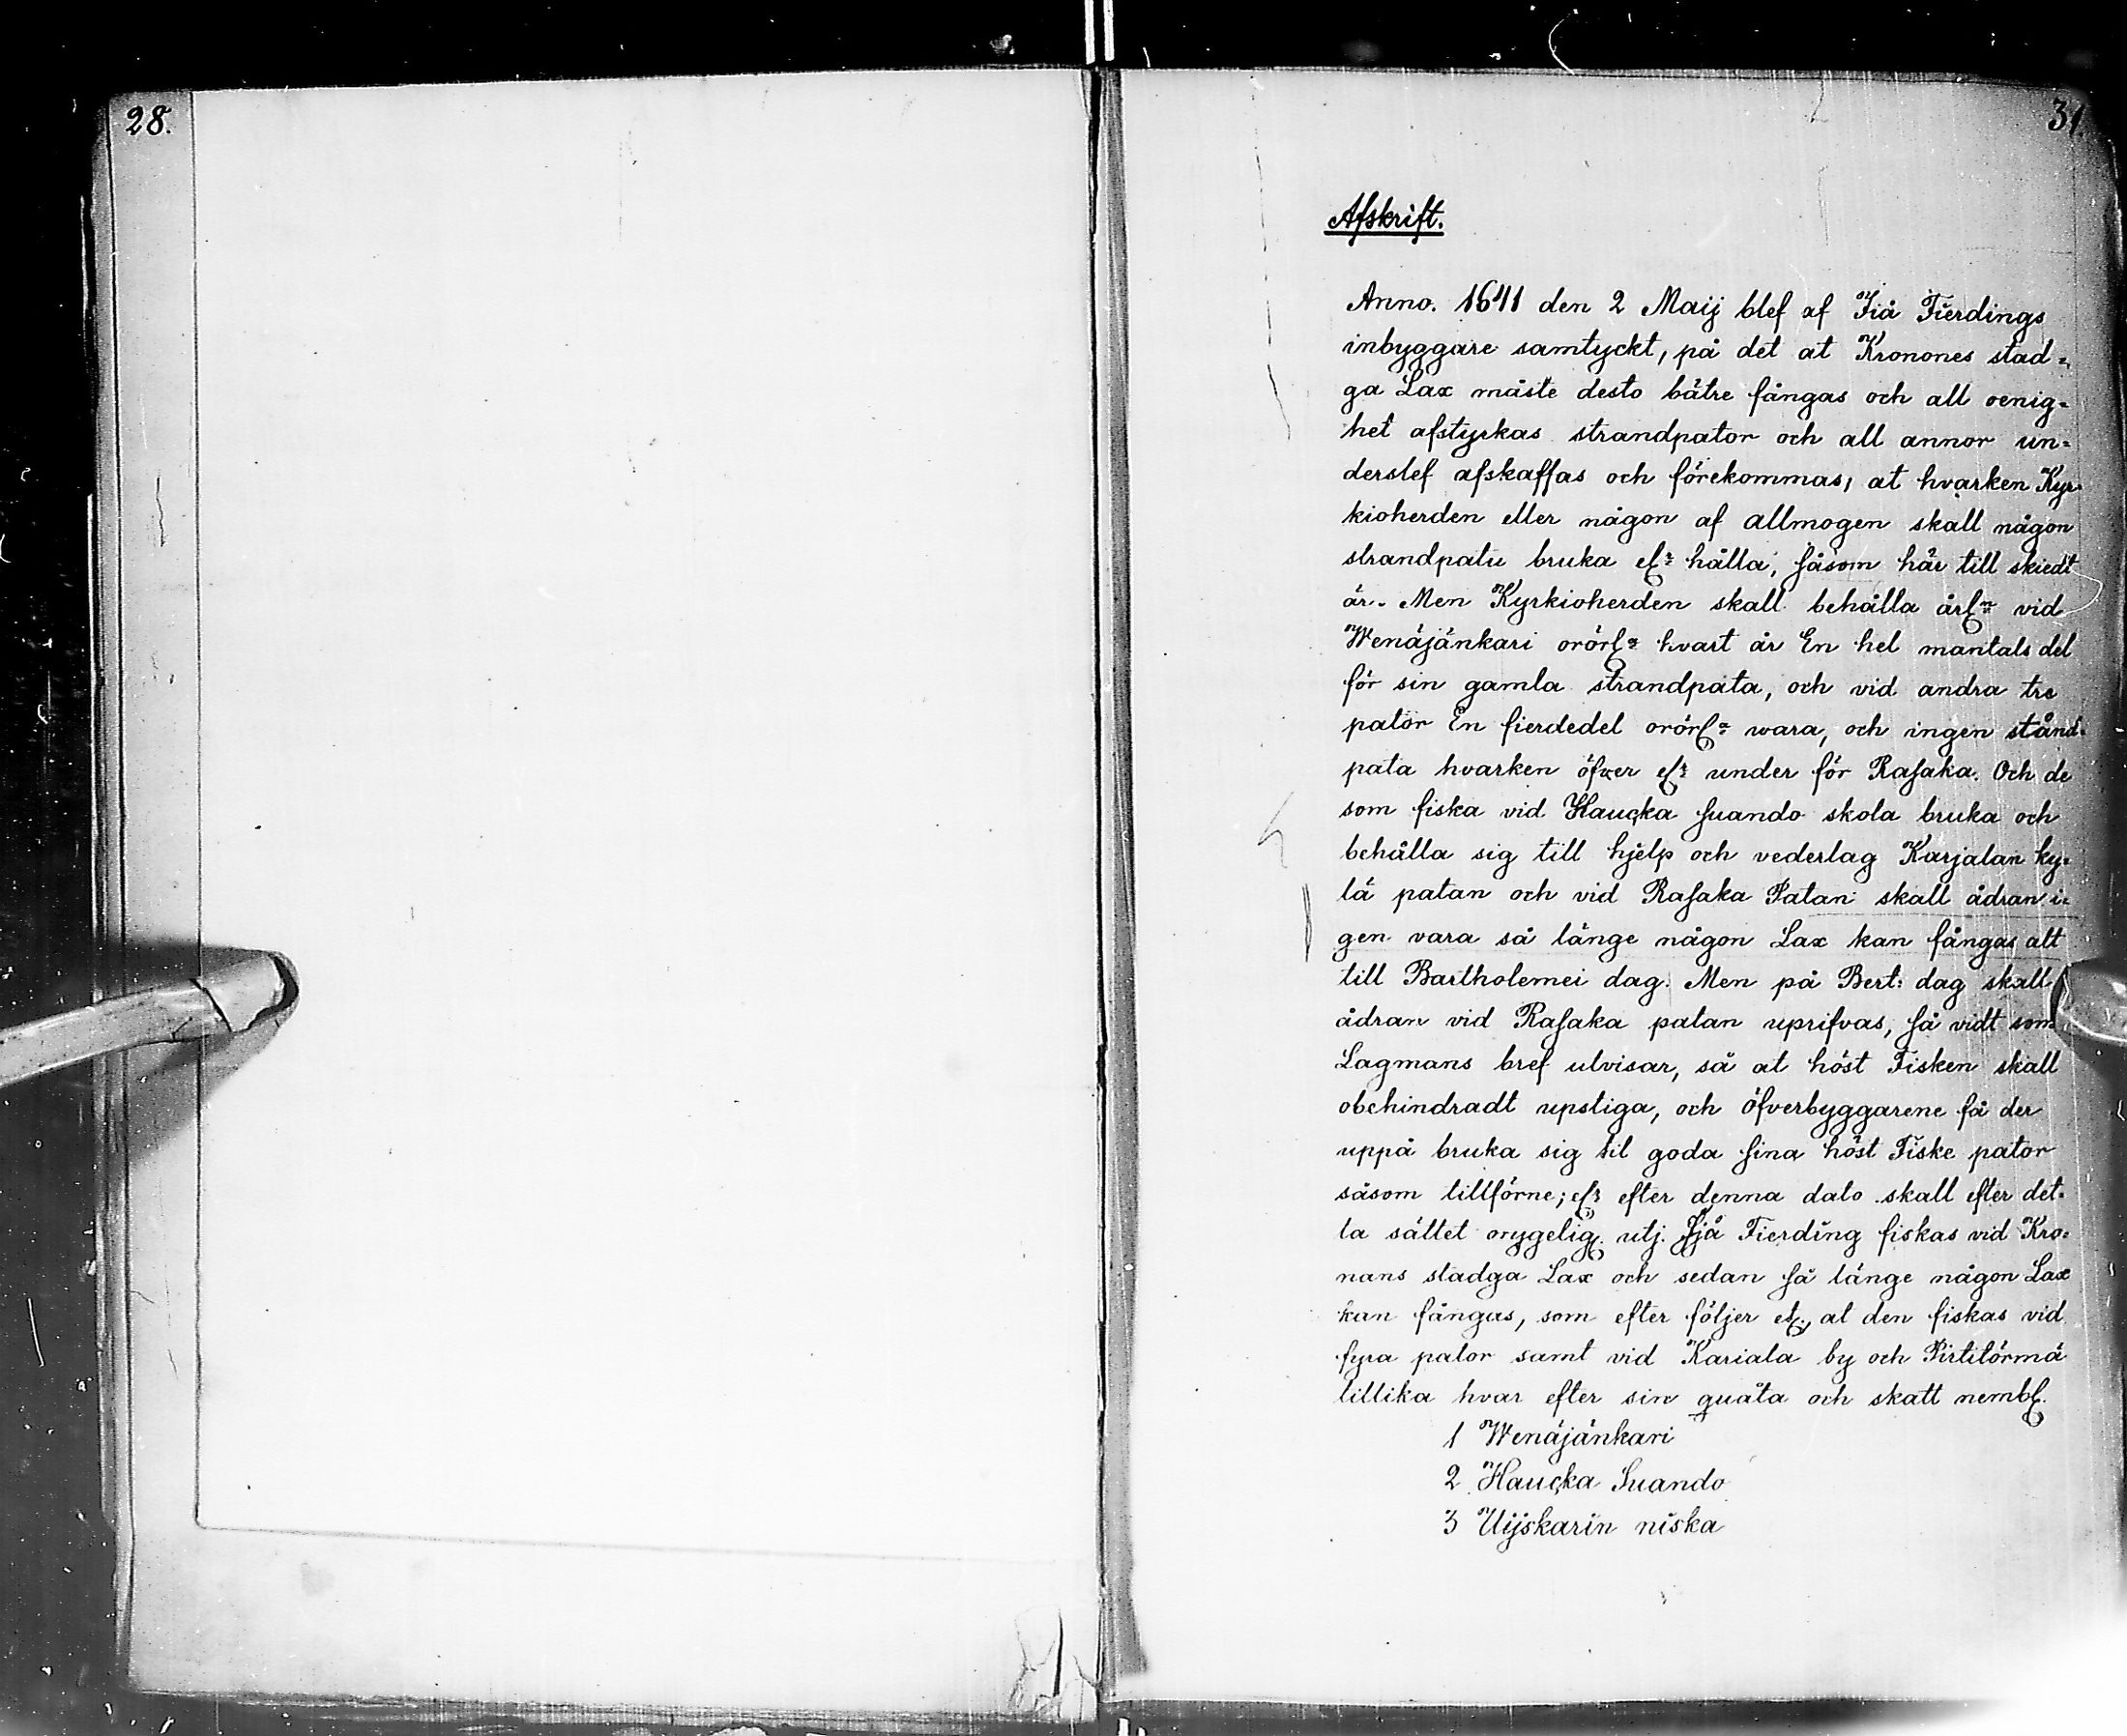 28.
31.
Afskrift.
Anno. 1641 den 2 Maij blef af Iiå Fierdings
inbyggare samtyckt, på det at Kronones stad=
ga Lax måste desto bätre fångas och all oenig=
het afstyrkas strandpator och all annor un=
derslef afskaffas och förekommas, at hvarken Kyr=
kioherden eller någon af allmogen skall någon
strandpatu bruka elr hålla, såsom här till skiedt
är. Men Kyrkioherden skall behålla årl. vid
Wenäjänkari orörl. hvart år En hel mantals del
för sin gamla strandpata, och vid andra tre
pator En fierdedel orörl. wara, och ingen stånd=
pata hvarken öfver elr under för Rasaka. Och de
som fiska vid Haucka Suando skola bruka och
behålla sig till hjelp och vederlag Karjalan ky=
lä patan och vid Rasaka Patan skall ådran i=
gen vara så länge någon Lax kan fångas alt
till Bartholemei dag. Men på Bert: dag skall
ådran vid Rasaka patan uprifvas, så vidt som
Lagmans bref utvisar, så at höst Fisken skall
obehindradt upstiga, och öfverbyggarene få der
uppå bruka sig til goda sina höst Fiske pator
såsom tillförne; efter denna dato skall efter det=
ta sättet orygelig. utj. Ijå Fierding fiskas vid Kro=
nans stadga Lax och sedan så länge någon Lax
kan fångas, som efter följer at den fiskas vid
fyra pator samt vid Kariala by och Pirtitörmä
tillika hvar efter sin quåta och skatt nembl.
1 Wenäjänkari
2 Haucka Suando
3 Uijskarin niska